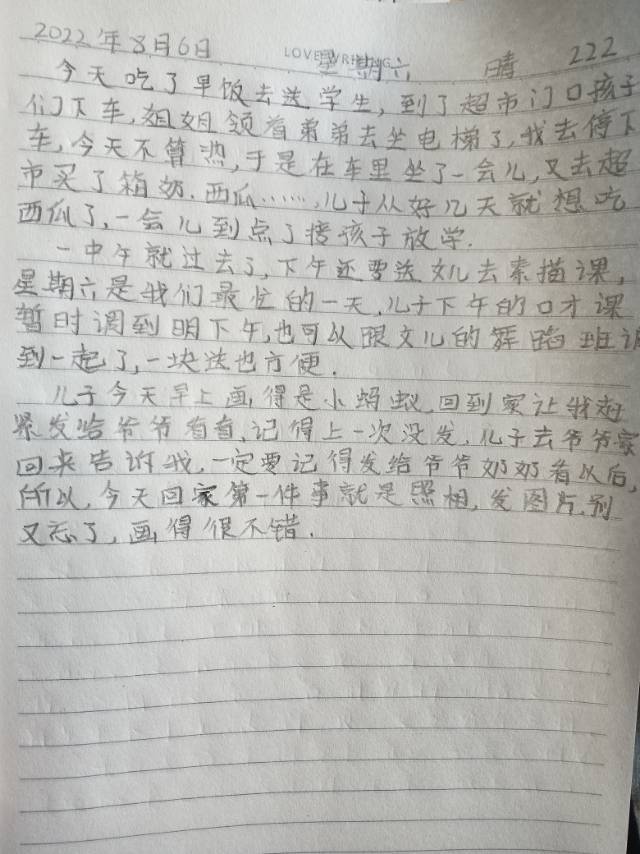 2022年8月6日 星期六 晴 222
今天吃了早饭去送学生，到了超市门口孩子
们下车，姐姐领着弟弟去坐电梯了，我去停下
车，今天不算热，于是在车里坐了一会儿，又去超
市买了箱奶.西瓜……，儿子从好几天就想吃
西瓜了，一会儿到点了接孩子放学.
一中午就过去了，下午还要送女儿去素描课，
星期六是我们最忙的一天，儿子下午的口才课
暂时调到明下午，也可以跟女儿的舞蹈班
到一起了，一块送也方便.
儿子今天早上画得是小蚂蚁，回到家让我赶
紧发给爷爷看看，记得上一次没发，儿子去爷爷家
回来告诉我，一定要记得发给爷爷奶奶看以后，
所以，今天回家第一件事就是照相，发图片，别
又忘了，画得很不错.